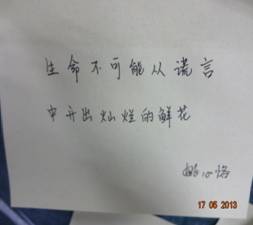 生命不可能从谎言
中开出灿烂的鲜花
17 05 2013